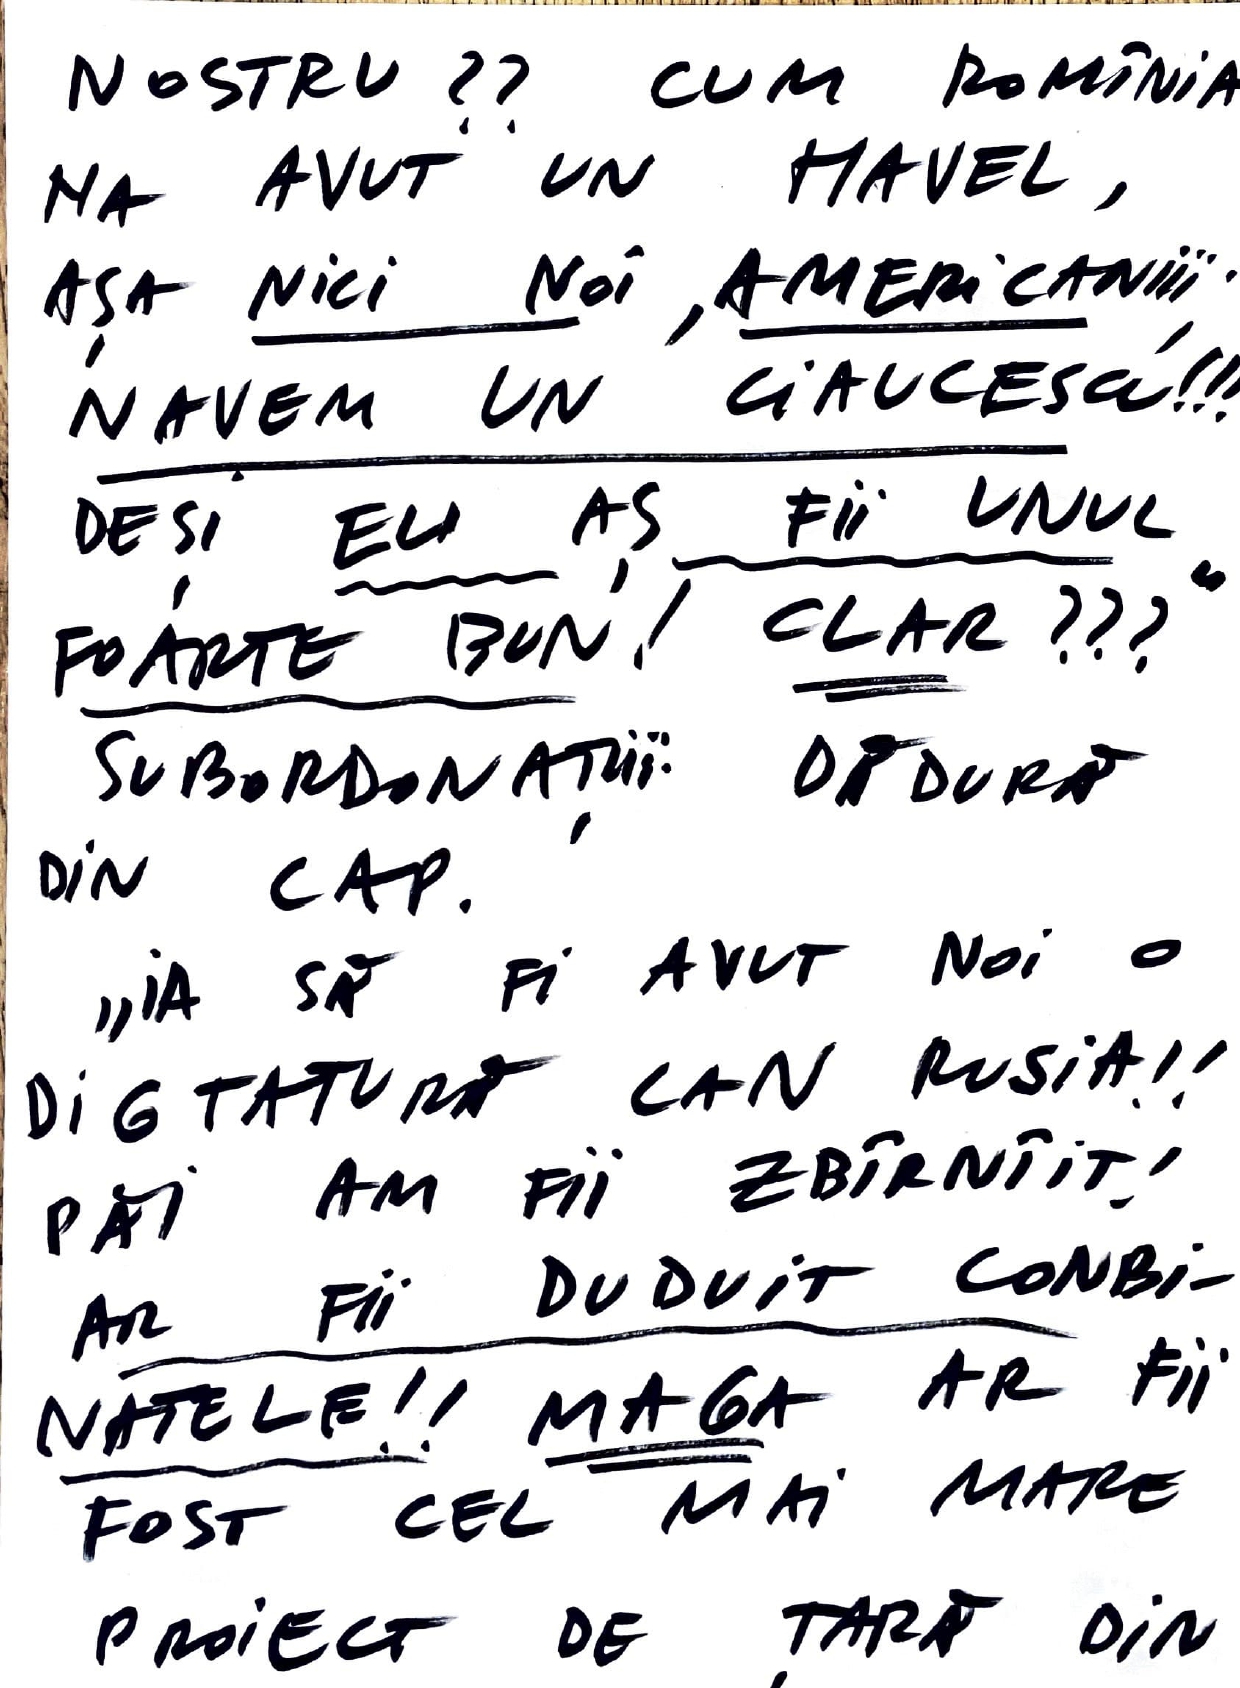 NOSTRU ?? CUM ROMÎNIA
NA AVUT UN HAVEL,
AȘA NICI NOI, AMERICANIII
NAVEM UN CIAUCESCU!!!
DEȘI EU AȘ FII UNUL
FOARTE BUN! CLAR ???"
SUBORDONAȚIII DĂDURĂ
DIN CAP.
„IA SĂ FI AVUT NOI O
DIGTATURĂ CAN RUSIA!!
PĂI AM FII ZBÎRNÎIT!
AR FII DUDUIT CONBI-
NATELE!! MAGA AR FII
FOST CEL MAI MARE
PROIECT DE ȚARĂ DIN